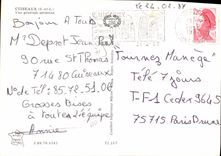 CUISEAUX (S.-et-L.)
Vue générale aérienne
Le 24.01.87
Bonjour A Tous
Mr Depret Jean-Paul
90 Rue St Thomas
71480 Cuiseaux
No de Tel: 85.72.51.06
Grosses Bises
à toute l'équipe
Annie
"Tournez Manège"
Télé 7 jours
T-F1 Cedex 9645
75715 Paris Brune